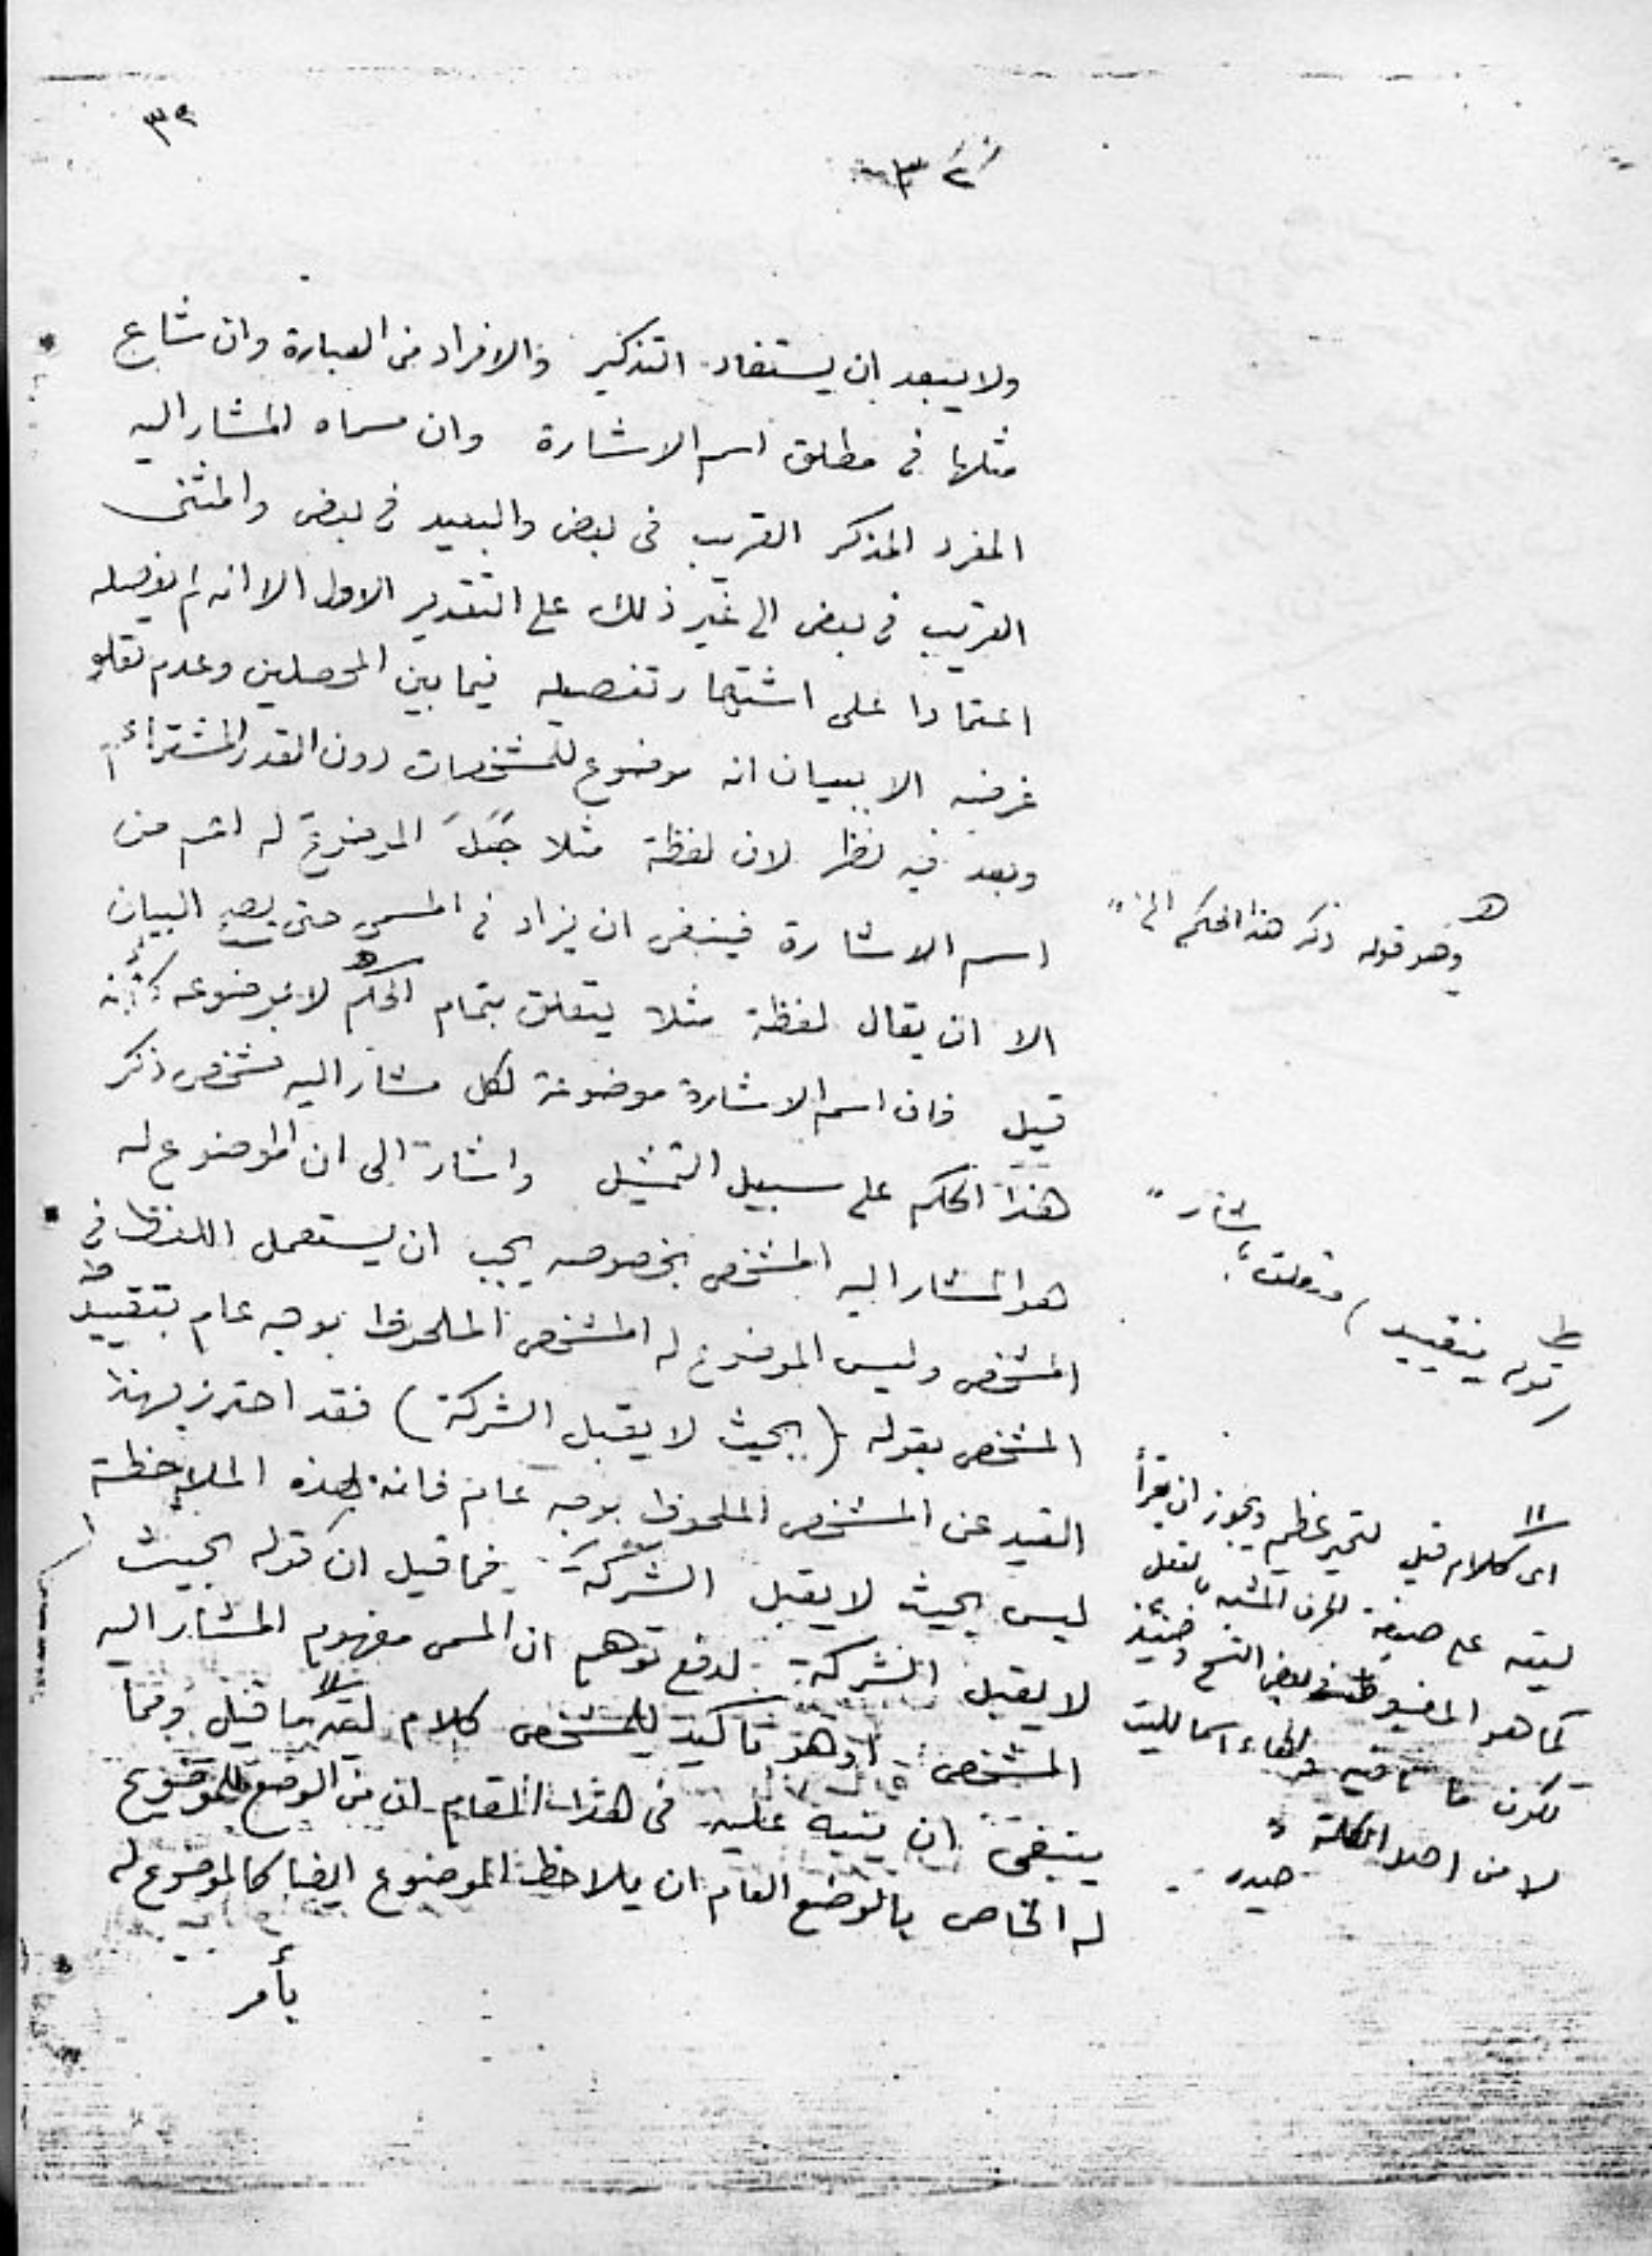 ٣٢
٣٢
ولا يبعد ان يستفاد التذكير والافراد من العبارة وان شاع
مثلها فى مطلق اسم الاشارة وان مسماه المشار اليه
المفرد المذكر القريب فى بعض والبعيد فى بعض والمثنى
القريب فى بعض الى غير ذلك على التقدير الاول الا انه لم يفصله
اعتمادا على اشتهار تفصيله فيما بين المحصلين وعدم تعلق
غرضه الا ببيان انه موضوع للمشخصات دون القدر المشترك
وبعد فيه نظر لان لفظة مثلا جعل الموضوع له اعم من
اسم الاشارة فينبغى ان يزاد فى المسمى حتى يصح البيان
الا ان يقال لفظة مثلا يتعلق بتمام الحكم لا بموضوعه كأنه
قيل فان اسم الاشارة موضوعة لكل مشار اليه مشخص ذكر
هذا الحكم على سبيل التمثيل واشارة الى ان الموضوع له
هو المشار اليه المشخص بخصوصه يجب ان يستعمل اللفظ فى
المشخص وليس الموضوع له المشخص الملحوظ بوجه عام بتقييد
المشخص بقوله (بحيث لا يقبل الشركة) فقد احترز بهذا
القيد عن المشخص الملحوظ بوجه عام فانه بهذه الملاحظة
ليس بحيث لا يقبل الشركة فما قيل ان قوله بحيث
لا يقبل الشركة لدفع توهم ان المسمى مفهوم المشار اليه
المشخص او هو تاكيد للمشخص كلام ليته ما قيل ومما
ينبغى ان ينبه عليه فى هذا المقام ان من الوضع للموضوع
له الخاص بالوضع العام ان يلاحظ الموضوع ايضا كالموضوع له
بأمر
وهو قوله ذكر هذا الحكم الخ
قوله بتقييد) متعلق باشار
اى كلام قيل لتحير عظيم ويجوز ان يقرأ
ليته على صيغة الحرف المشبه بالفعل
كما هو المضبوط فى بعض النسخ وحينئذ
تكون ما نافية والهاء اسما لليت
لا من اصل الكلمة
حيدر